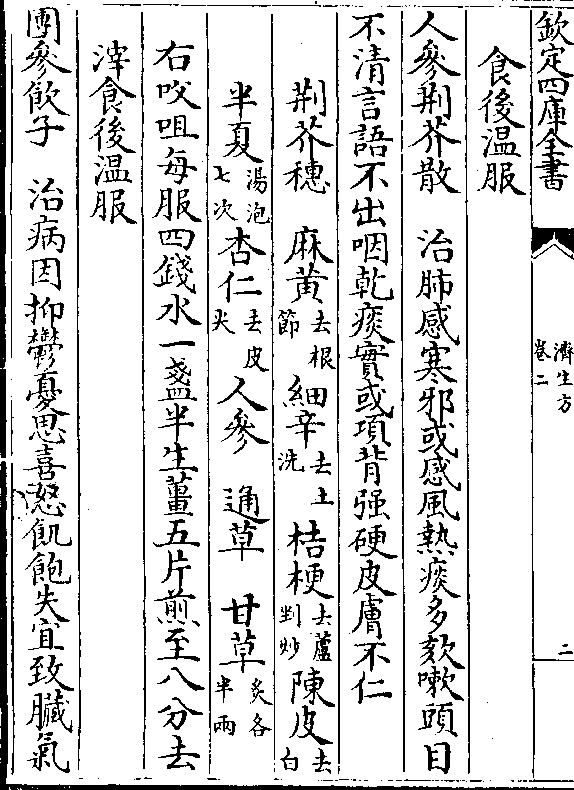 欽定四庫全書
濟生方
卷二
二
食後温服
人參荆芥散　治肺感寒邪或感風熱痰多欬嗽頭目
不清言語不出咽乾痰實或項背强硬皮膚不仁
荆芥穗　麻黄去根節　細辛去土洗　桔梗去蘆剉炒　陳皮去白
半夏湯泡七次　杏仁去皮尖　人參　通草　甘草炙各半兩
右㕮咀每服四錢水一盞半生薑五片煎至八分去
滓食後温服
團參飲子　治病因抑鬱憂思喜怒飢飽失宜致臟氣